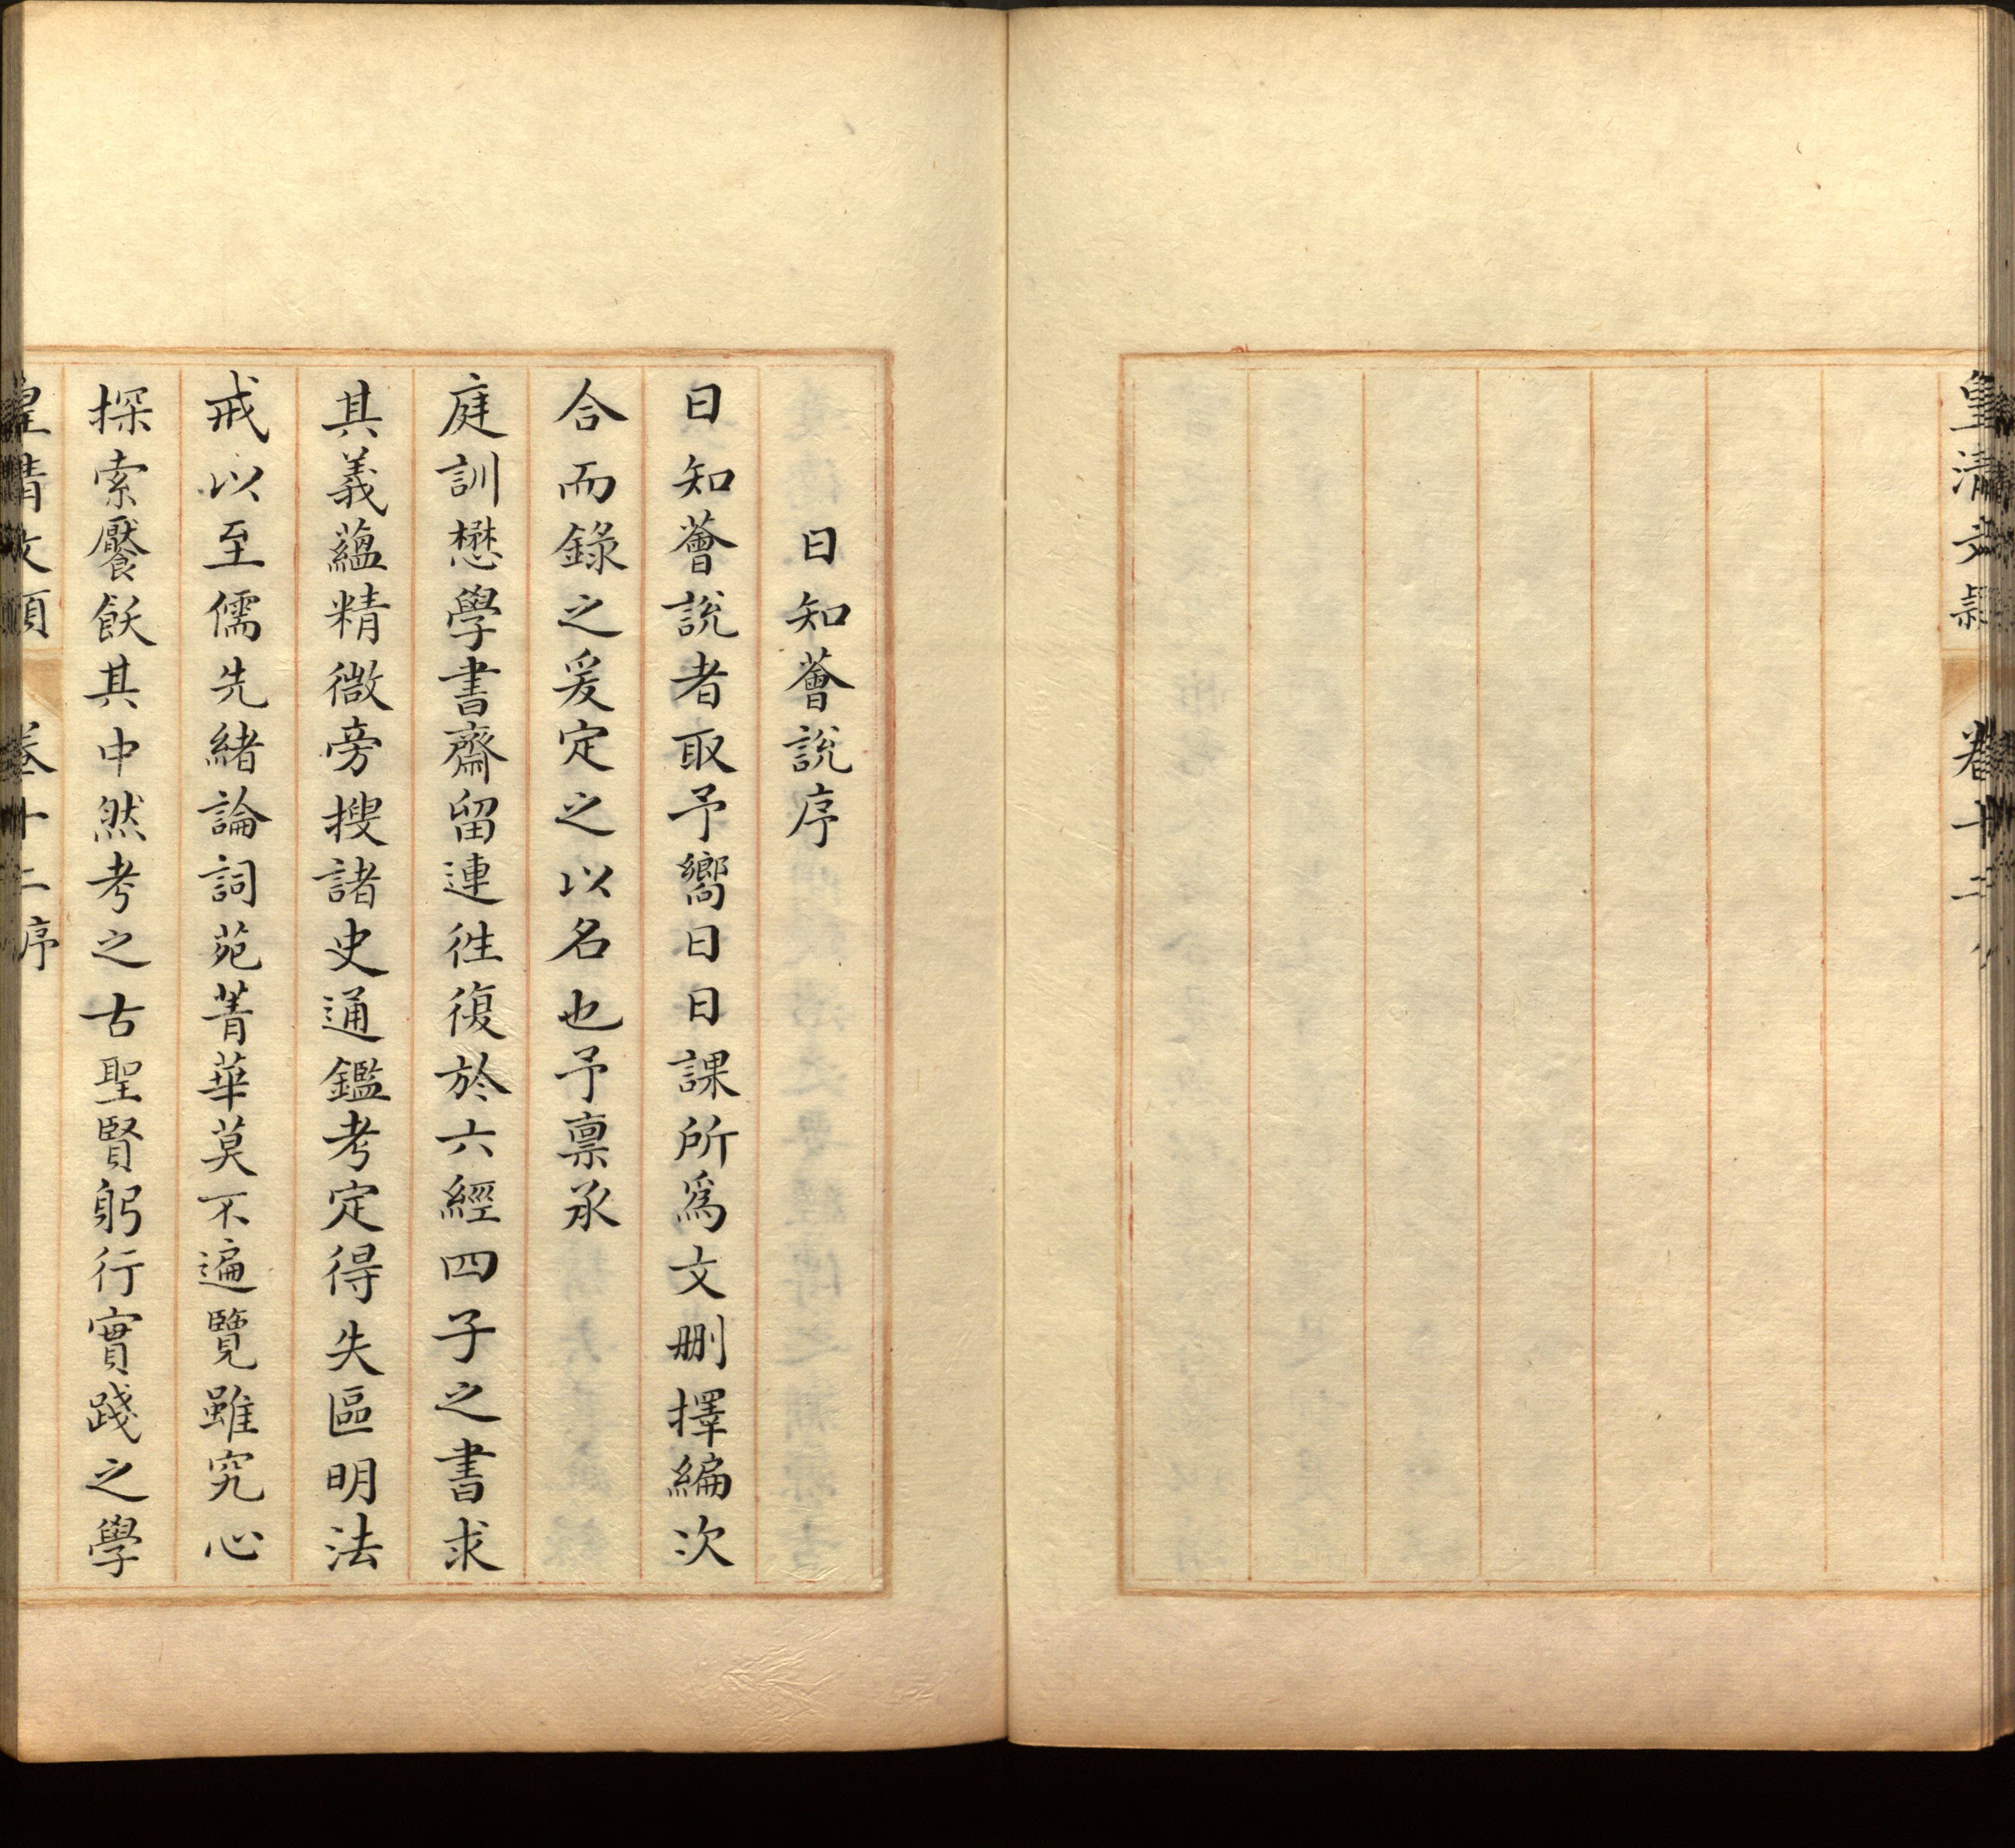 皇清文穎 卷十二
日知薈說序
日知薈說者取予嚮日日課所爲文刪擇編次
合而錄之爰定之以名也予禀承
庭訓懋學書齋留連徃復於六經四子之書求
其義蘊精微旁搜諸史通鑑考定得失區明法
戒以至儒先緒論詞苑菁華莫不遍覽雖究心
探索饜飫其中然考之古聖賢躬行實踐之學
皇清文穎 卷十二序